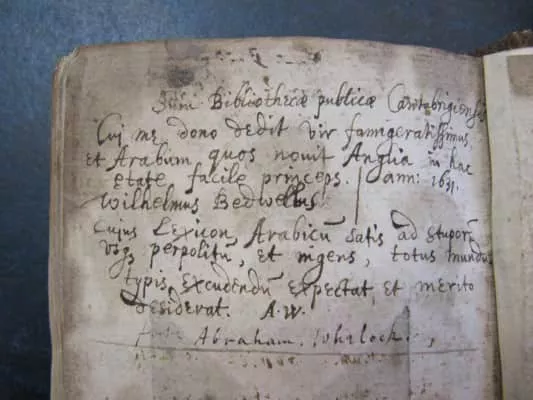 Sum Bibliothecæ publicæ Cantabrigiensis
Cui me dono dedit vir famigeratissimus
et Arabum quos novit Anglia in hac
etate facile princeps. ann: 1631.
Wilhelmus Bedwellus.
Cujus Lexicon Arabicū satis ad stuporē
usq; perpolitū, et ingens, totus mundus
typis excudendū expectat et merito
desiderat. A.W.
Abraham. Whelock.